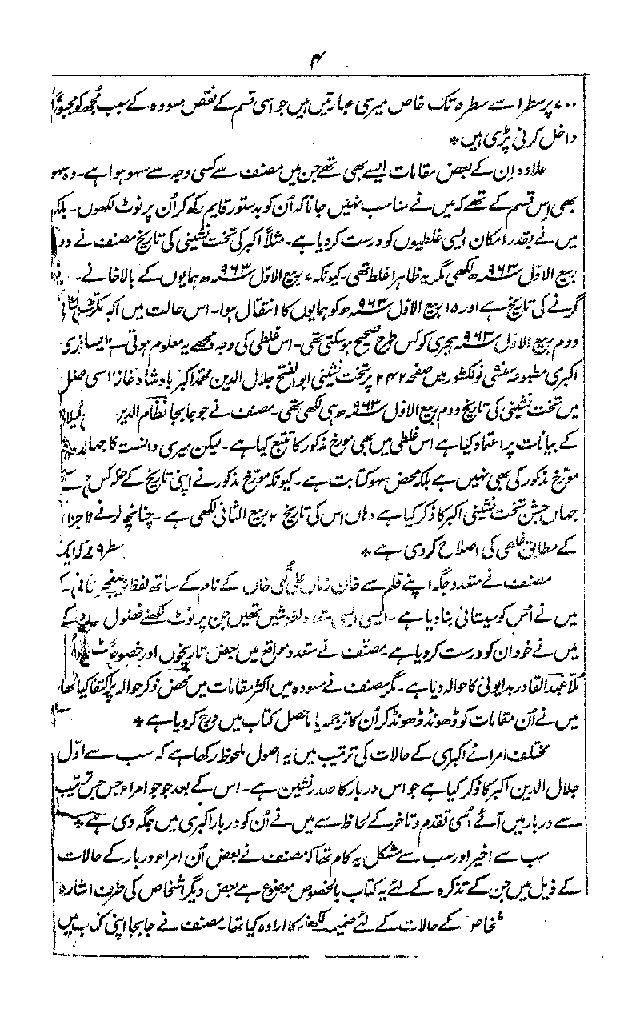 ۴
۷۰۰ پر سطر ۱ سے سطر ۵ تک خاص میری عبارتیں ہیں جو اسی قسم کے نقص مسودہ کے سبب مجھ کو مجبوراً
داخل کرنی پڑی ہیں *
علاوہ اِن کے بعض مقامات ایسے بھی تھے جن میں مصنف سے کسی وجہ سے سہو ہوا ہے۔ وہ سہو
بھی اِس قسم کے تھے کہ میں نے مناسب نہیں جانا کہ اُن کو بدستور قایم رکھ کر اُن پر نوٹ لکھوں۔ بلکہ
میں نے بقدر امکان ایسی غلطیوں کو درست کر دیا ہے۔ مثلاً اکبر کی تخت نشینی کی تاریخ مصنف نے دوم
ربیع الاوّل ۹۶۳ھ لکھی مگر یہ ظاہراً غلط تھی۔ کیونکہ ۷ ربیع الاوّل ۹۶۳ھ ہمایوں کے بالا خانے سے
گرنے کی تاریخ ہے اور ۱۵ ربیع الاوّل ۹۶۳ھ کو ہمایوں کا انتقال ہوا۔ اس حالت میں اکبر کی تخت نشینی
دوم ربیع الاوّل ۹۶۳ ہجری کو کس طرح صحیح ہو سکتی تھی۔ اس غلطی کی وجہ مجھے یہ معلوم ہوتی ہے
اکبری مطبوعہ منشی نولکشور میں صفحہ ۲۴۲ پر تخت نشینی ابو الفتح جلال الدین محمد اکبر بادشاہ غازی اسی فصل
میں تخت نشینی کی تاریخ دوم ربیع الاوّل ۹۶۳ھ ہی لکھی تھی۔ مصنف نے جو جا بجا نظام الدین
کے بیانات پر اعتماد کیا ہے اس غلطی میں بھی مورخ مذکور کا تتبع کیا ہے۔ لیکن میری دانست کا جہاں
مورخ مذکور کی بھی نہیں ہے بلکہ محض سہو کتابت ہے۔ کیونکہ مورخ مذکور نے اپنی تاریخ کے
جہاں جشن تخت نشینی اکبر کا ذکر کیا ہے وہاں اس کی تاریخ ۲ ربیع الثانی لکھی ہے۔ چنانچہ
کے مطابق غلطی کی اصلاح کر دی ہے *
مصنف نے متعدد جگہ اپنے قلم سے خان زماں علی قلی خاں کے نام کے ساتھ لفظ
میں نے اُس کو سیستانی بنا دیا ہے۔ ایسی لغزشیں تھیں جن پر نوٹ لکھنے فضول
میں نے خود ان کو درست کر دیا ہے۔ مصنف نے متعدد مواقع میں بعض تاریخوں اور خصوصاً
ملا عبد القادر بدایونی کا حوالہ دیا ہے۔ مگر مصنف نے مسودہ میں اکثر مقامات میں محض ذکر حوالہ پر اکتفا کیا تھا
میں نے اُن مقامات کو ڈھونڈ ڈھونڈ کر اُن کا ترجمہ یا ماحصل کتاب میں درج کر دیا ہے *
مختلف امرائے اکبری کے حالات کی ترتیب میں یہ اصول ملحوظ رکھا ہے کہ سب سے اوّل
جلال الدین اکبر کا ذکر کیا ہے جو اس دربار کا صدر نشین ہے۔ اس کے بعد جو جو امراء جس جس ترتیب
سے دربار میں آئے اُسی تقدم و تاخر کے لحاظ سے میں نے اُن کو دربار اکبری میں جگہ دی ہے *
سب سے اخیر اور سب سے مشکل یہ کام تھا کہ مصنف نے بعض اُن امراء دربار کے حالات
کے ذیل میں جن کے تذکرہ کے لئے یہ کتاب بالخصوص موضوع ہے بعض دیگر اشخاص کی طرف اشارہ
کے حالات کے لئے ضمیمہ لکھنے کا ارادہ کیا تھا مصنف نے جا بجا اپنی کتاب میں